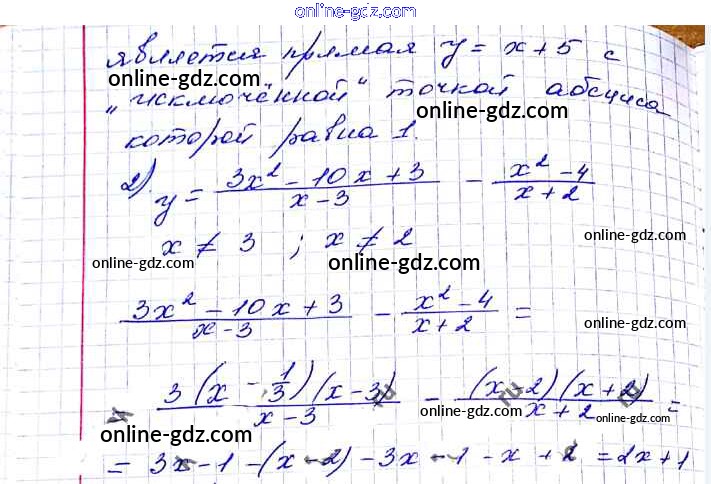 online-gdz.com
является прямая y = x + 5 с
online-gdz.com
online-gdz.com
„исключённой“ точкой абсцисса
online-gdz.com
которой равна 1.
2) y = (3x² - 10x + 3)/(x - 3) - (x² - 4)/(x + 2)
x ≠ 3 ; x ≠ 2
online-gdz.com
online-gdz.com
online-gdz.com
(3x² - 10x + 3)/(x - 3) - (x² - 4)/(x + 2) =
online-gdz.com
= 3(x - 1/3)(x - 3)/(x - 3) - (x - 2)(x + 2)/(x + 2) =
ru
ru
ru
online-gdz.com
online-gdz.com
online-gdz.com
= 3x - 1 - (x - 2) - 3x - 1 - x + 2 = 2x + 1